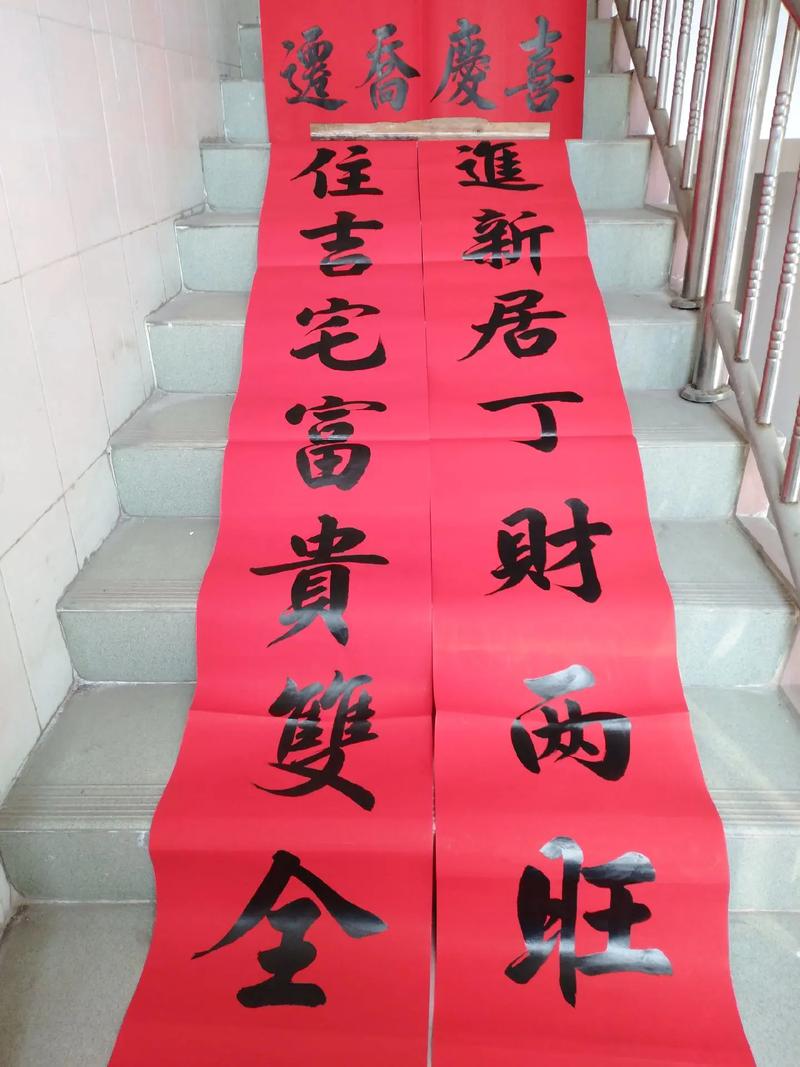 喜慶喬遷
進新居丁財两旺
住吉宅富貴雙全